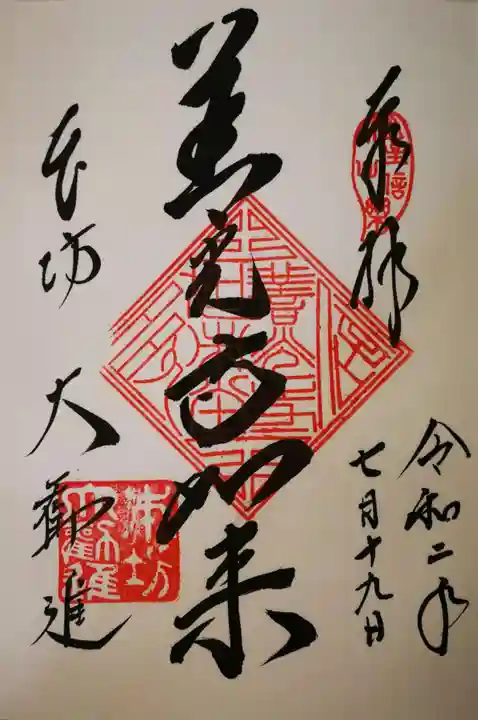 奉拝
令和二年
七月十九日
善光寺如来
本坊
大勧進